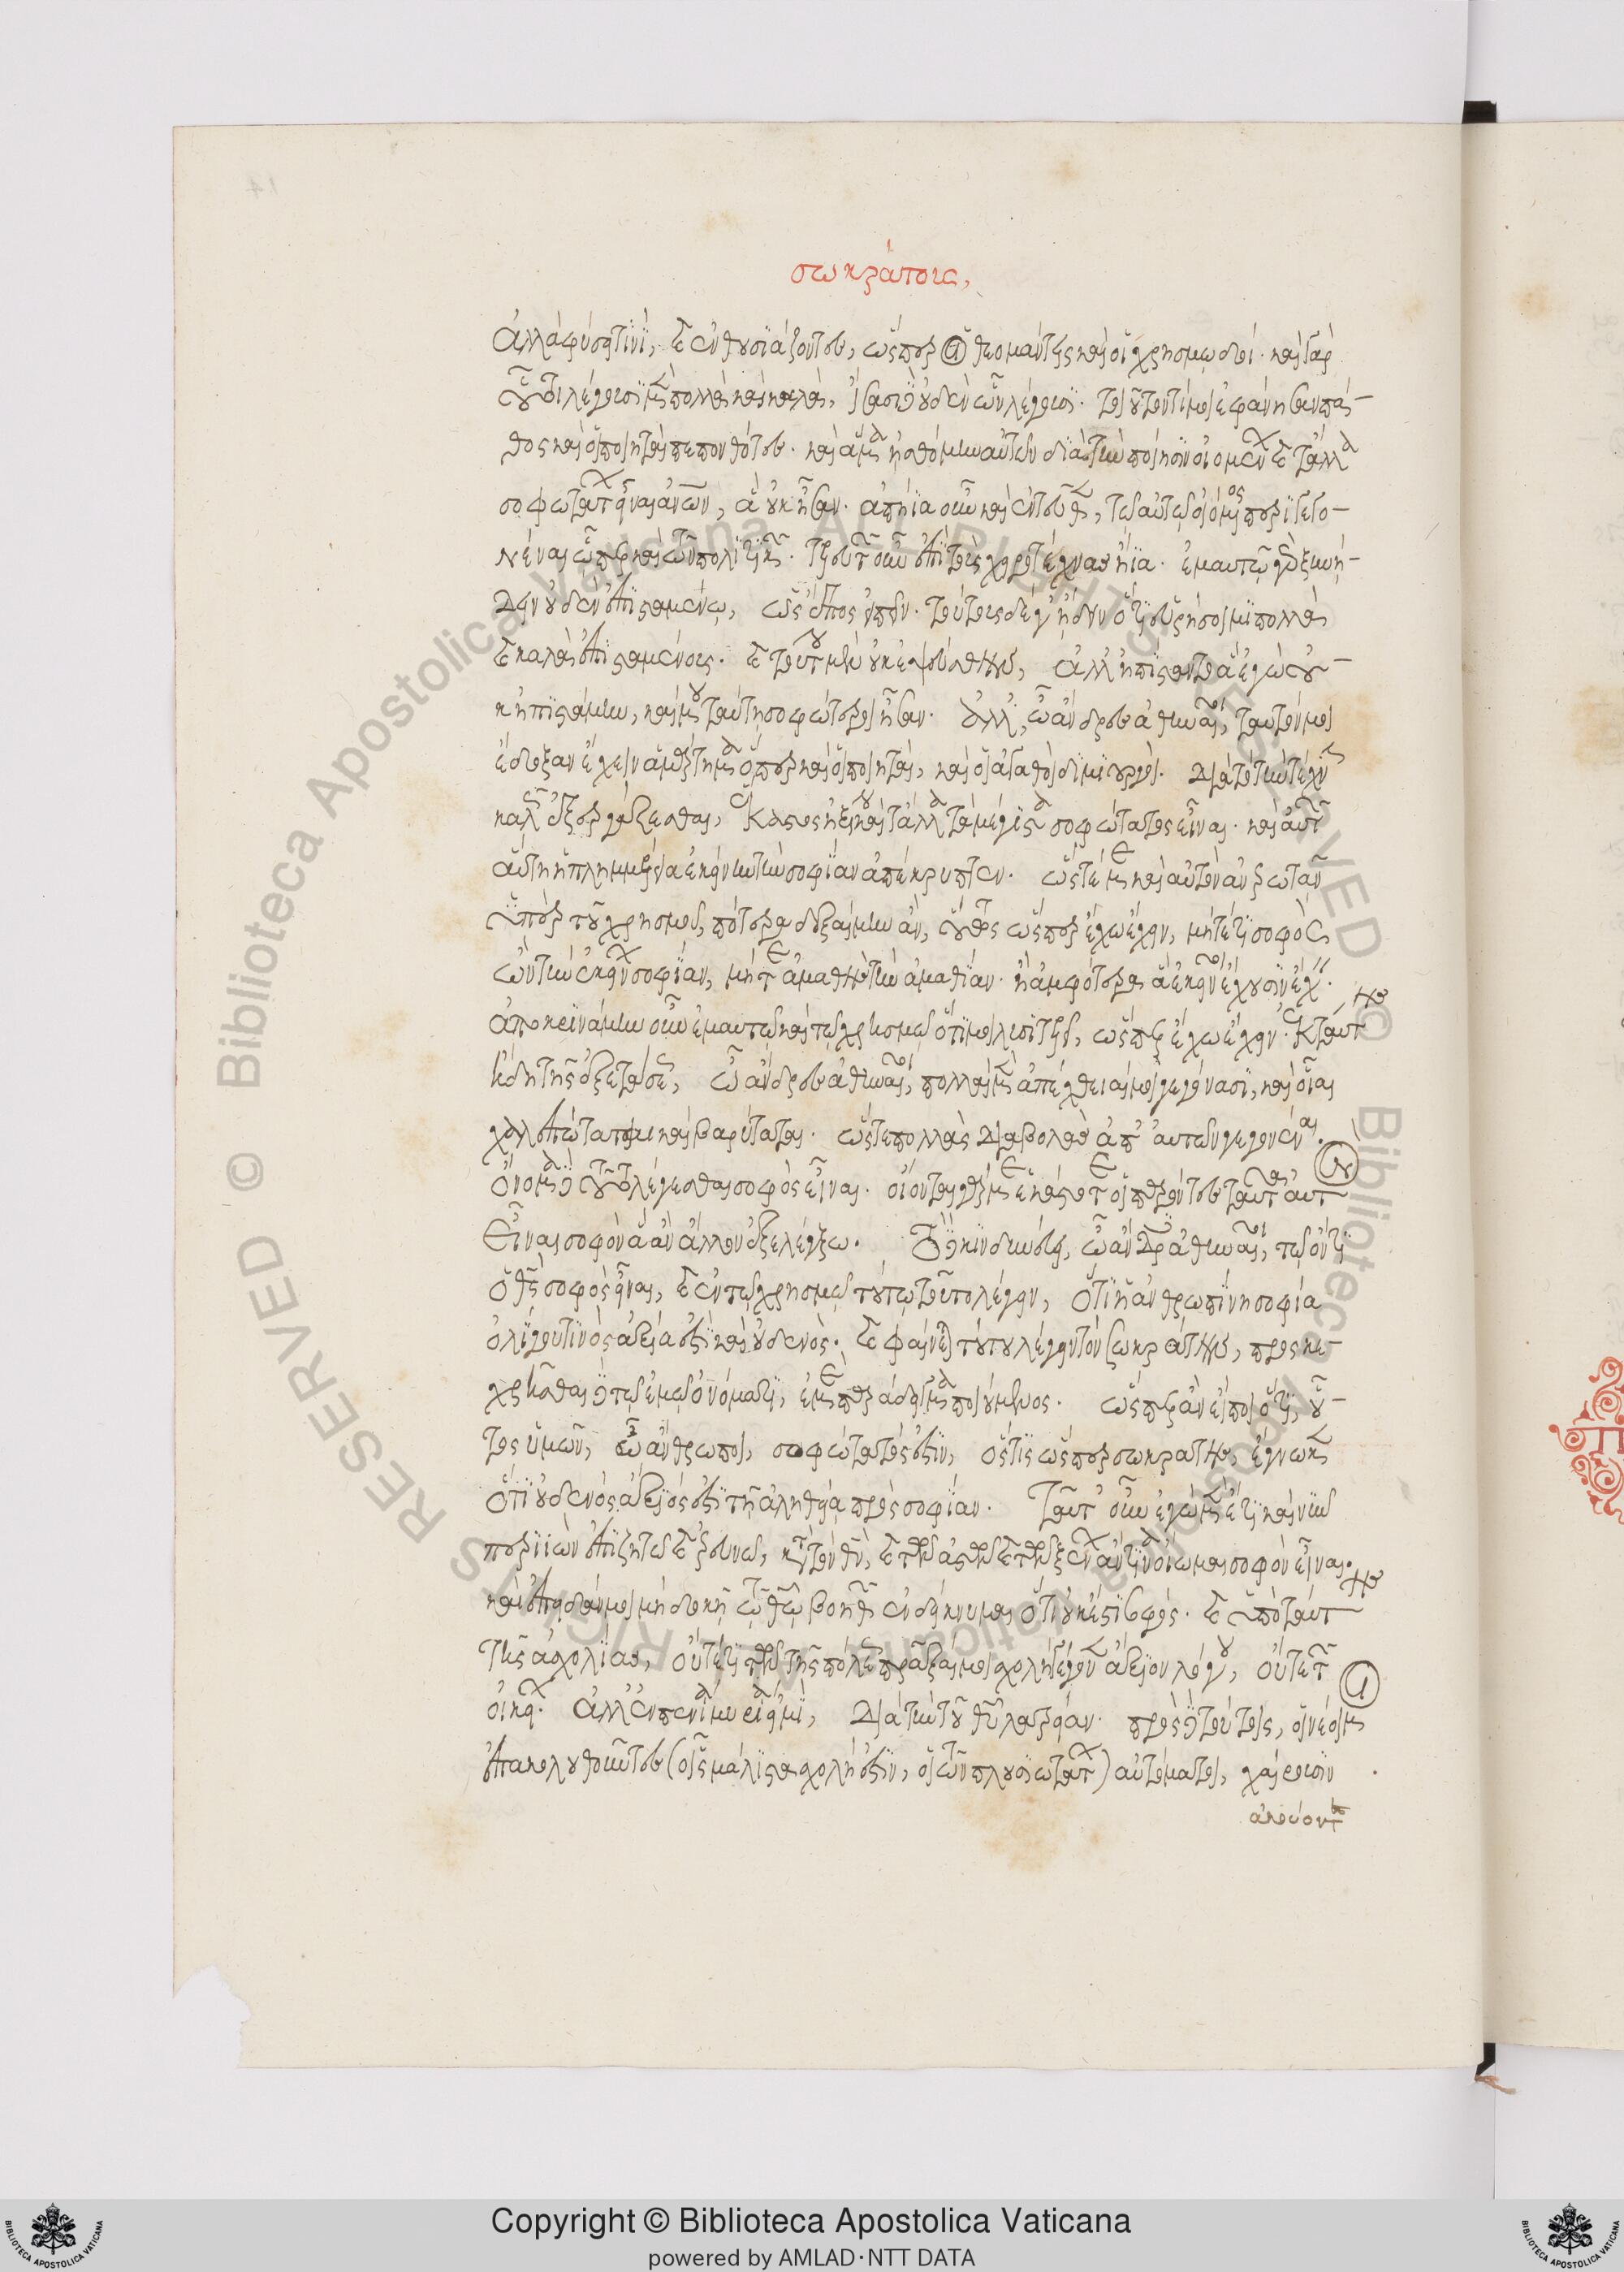 σωκράτους,
ἀλλὰ φύσει τινὶ, καὶ ἐνθουσιάζοντες, ὥσπερ οἱ θεομάντεις καὶ οἱ χρησμωδοί. καὶ γὰρ
οὗτοι λέγουσι μὲν πολλὰ καὶ καλὰ, ἴσασι δὲ οὐδὲν ὧν λέγουσι. τοιοῦτόν τί μοι ἐφάνησαν πά-
θος καὶ οἱ ποιηταὶ πεπονθότες. καὶ ἅμα ἠσθόμην αὐτῶν διὰ τὴν ποίησιν οἰομένων καὶ τἆλλα
σοφωτάτων εἶναι ἀνθρώπων, ἃ οὐκ ἦσαν. ἀπῄα οὖν καὶ ἐντεῦθεν, τῷ αὐτῷ οἰόμενος περιγεγο-
νέναι ὧπερ καὶ τῶν πολιτικῶν. τελευτῶν οὖν ἐπὶ τοὺς χειροτέχνας ἦια. ἐμαυτῷ γὰρ ξυνή-
δειν οὐδὲν ἐπισταμένῳ, ὡς ἔπος εἰπεῖν. τούτους δέ γ' ᾔδειν ὅτι εὑρήσοιμι πολλὰ
καὶ καλὰ ἐπισταμένους. καὶ τούτου μὲν οὐκ ἐψεύσθην, ἀλλ' ἠπίσταντο ἃ ἐγὼ οὐ-
κ ἠπιστάμην, καί μου ταύτῃ σοφώτεροι ἦσαν. ἀλλ', ὦ ἄνδρες ἀθηναῖοι, ταυτόν μοι
ἔδοξαν ἔχειν ἁμάρτημα ὅπερ καὶ οἱ ποιηταὶ, καὶ οἱ ἀγαθοὶ δημιουργοί. διὰ τὸ τὴν τέχνην
καλῶς ἐξεργάζεσθαι, ἕκαστος ἠξίου καὶ τἆλλα τὰ μέγιστα σοφώτατος εἶναι. καὶ αὐτῶν
αὕτη ἡ πλημμέλεια ἐκείνην τὴν σοφίαν ἀπέκρυπτεν. ὥστέ με καὶ αὐτὸν ἀνερωτᾶν
ὑπὲρ τοῦ χρησμοῦ, πότερα δεξαίμην ἂν, οὕτως ὥσπερ ἔχω ἔχειν, μήτέ τι σοφὸς
ὢν τὴν ἐκείνων σοφίαν, μήτε ἀμαθὴς τὴν ἀμαθίαν. ἢ ἀμφότερα ἃ ἐκεῖνοι ἔχουσιν ἔχειν.
ἀπεκρινάμην οὖν ἐμαυτῷ καὶ τῷ χρησμῷ ὅτι μοι λυσιτελεῖ, ὥσπερ ἔχω ἔχειν. ἐκ ταυτησὶ
δὴ τῆς ἐξετάσεως, ὦ ἄνδρες ἀθηναῖοι, πολλαὶ μὲν ἀπέχθειαί μοι γεγόνασι, καὶ οἷαι
χαλεπώταται καὶ βαρύταται. ὥστε πολλὰς διαβολὰς ἀπ' αὐτῶν γεγονέναι.
ὄνομα δὲ τοῦτο λέγεσθαι σοφὸς εἶναι. οἴονται γάρ με ἑκάστοτε οἱ παρόντες ταῦτα αὐτὸν
εἶναι σοφὸν ἃ ἂν ἄλλον ἐξελέγξω. τὸ δὲ κινδυνεύει, ὦ ἄνδρες ἀθηναῖοι, τῷ ὄντι
ὁ θεὸς σοφὸς εἶναι, καὶ ἐν τῷ χρησμῷ τούτῳ τοῦτο λέγειν, ὅτι ἡ ἀνθρωπίνη σοφία
ὀλίγου τινὸς ἀξία ἐστὶ καὶ οὐδενὸς. καὶ φαίνεται τοῦτ' οὐ λέγειν τὸν σωκράτην, προσκε-
χρῆσθαι δὲ τῷ ἐμῷ ὀνόματι, ἐμὲ παράδειγμα ποιούμενος. ὥσπερ ἂν εἴποι ὅτι, οὗ-
τος ὑμῶν, ὦ ἄνθρωποι, σοφώτατός ἐστιν, ὅστις ὥσπερ σωκράτης, ἔγνωκεν
ὅτι οὐδενὸς ἄξιός ἐστι τῇ ἀληθείᾳ πρὸς σοφίαν. ταῦτ' οὖν ἐγὼ μὲν ἔτι καὶ νῦν
περιιὼν ἐπιζητῶ καὶ ἐρευνῶ, κατὰ τὸν θεὸν, καὶ τῶν ἀστῶν καὶ τῶν ξένων ἄν τινα οἴωμαι σοφὸν εἶναι.
καὶ ἐπειδάν μοι μὴ δοκῇ τῷ θεῷ βοηθῶν ἐνδείκνυμαι ὅτι οὐκ ἔστι σοφός. καὶ ὑπὸ ταύτης
τῆς ἀσχολίας, οὔτέ τι τῶν τῆς πόλεως πρᾶξαί μοι σχολὴ γέγονεν ἄξιον λόγου, οὔτε τῶν
οἰκείων. ἀλλ' ἐν πενίᾳ μυρίᾳ εἰμὶ, διὰ τὴν τοῦ θεοῦ λατρείαν. πρὸς δὲ τούτοις, οἱ νέοι μοι
ἐπακολουθοῦντες (οἷς μάλιστα σχολή ἐστιν, οἱ τῶν πλουσιωτάτων) αὐτόματοι, χαίρουσιν
ἀκούοντες